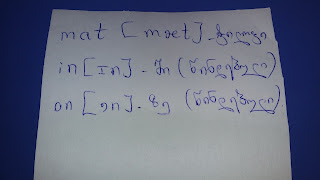 mat [mæt] - ჭილოფი
in [ɪn] - ში (წინდებული)
on [ɔn] - ზე (წინდებული)